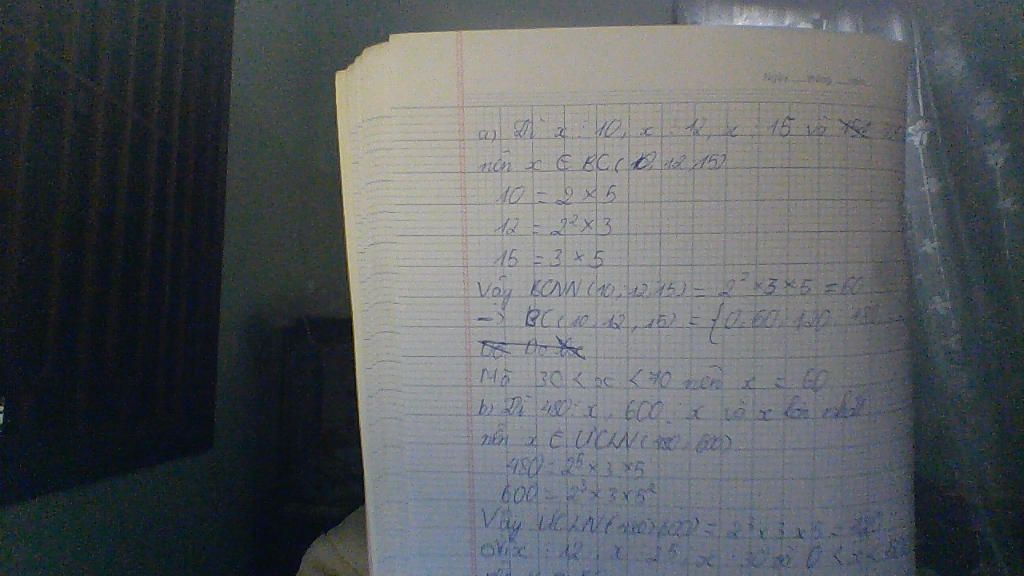 Ngày tháng năm
a) Vì x ⋮ 10, x ⋮ 12, x ⋮ 15 và
nên x ∈ BC(10,12,15)
10 = 2 × 5
12 = 2² × 3
15 = 3 × 5
Vậy BCNN(10,12,15) = 2² × 3 × 5 = 60
→ BC(10,12,15) = {0, 60, 120, 180
Mà 30 < x < 70 nên x = 60
b) Vì 480 ⋮ x, 600 ⋮ x và x lớn nhất
nên x ∈ ƯCLN(480, 600)
480 = 2⁵ × 3 × 5
600 = 2³ × 3 × 5²
Vậy ƯCLN(480,600) = 2³ × 3 × 5 =
x ⋮ 12, x ⋮ 25, x ⋮ 30 và 0 < x <